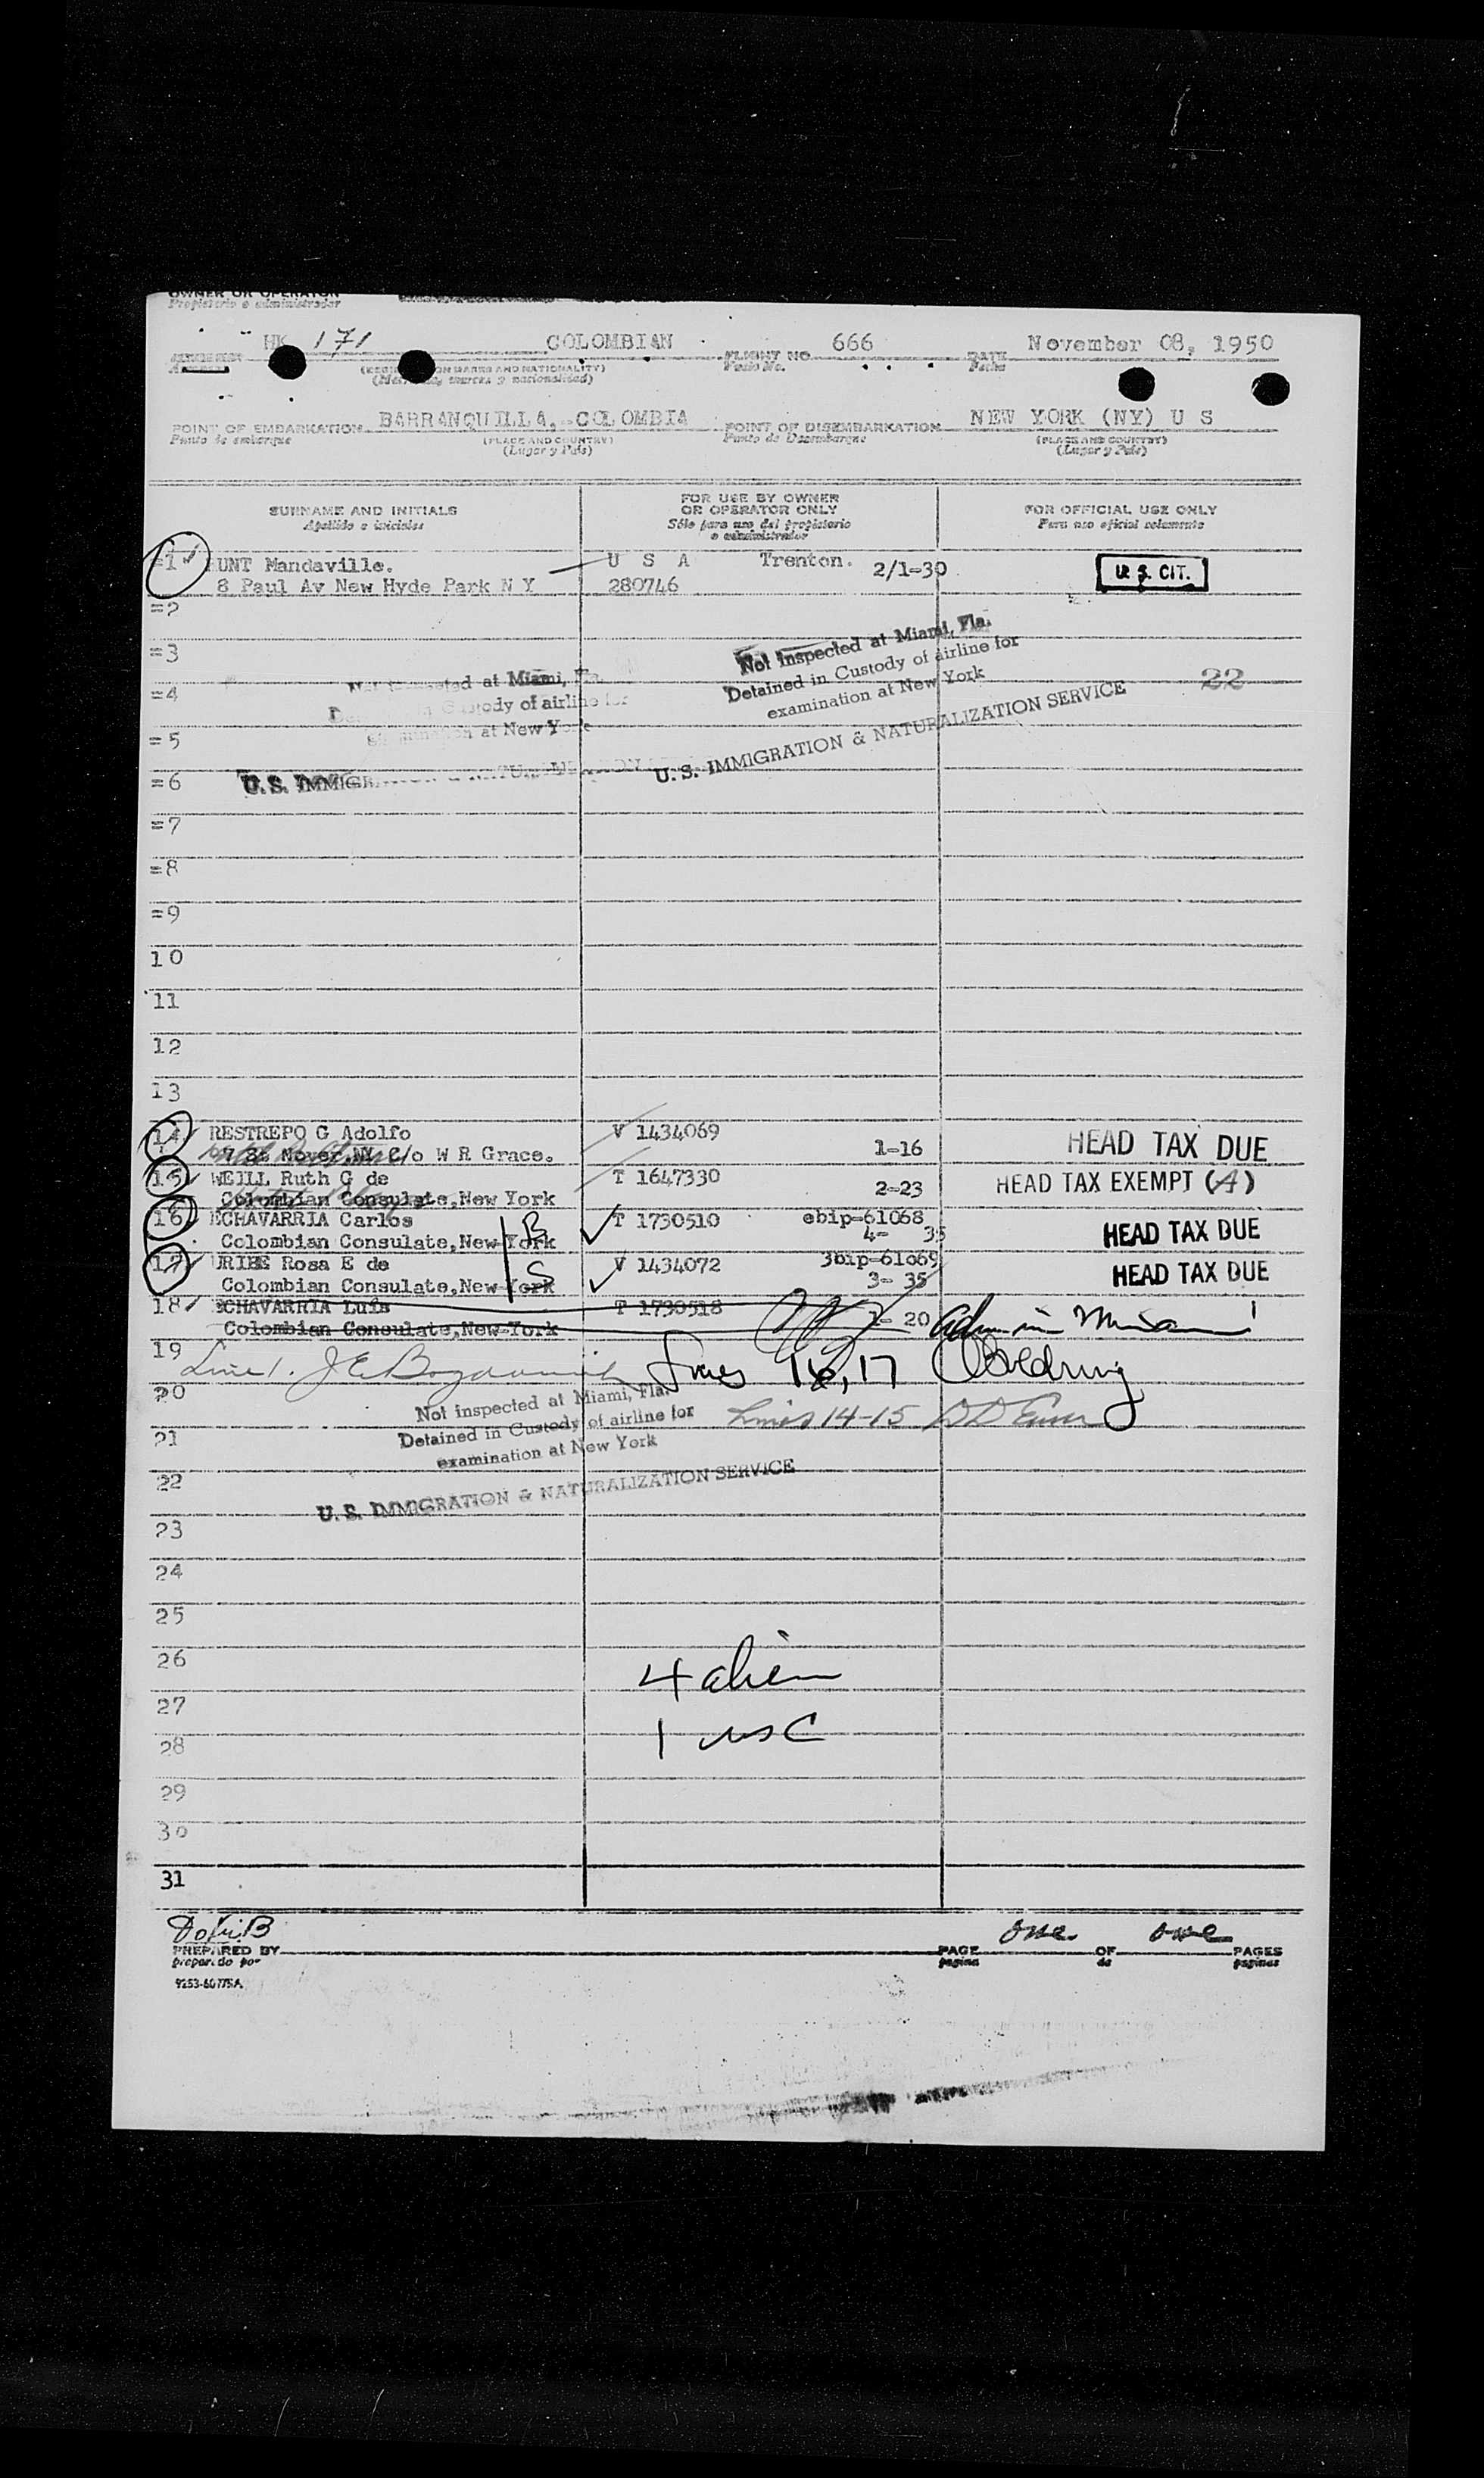 OWNER OR OPERATOR
Propietario o administrador
HK 171 COLOMBIAN 666 November 08, 1950
FLIGHT NO DATE
(MARKS AND NATIONALITY) Vuelo No. Fecha
marcas y nacionalidad)
BARRANQUILLA, COLOMBIA NEW YORK (NY) U S
POINT OF EMBARKATION POINT OF DISEMBARKATION
Punto de embarque (PLACE AND COUNTRY) Punto de Desembarque (PLACE AND COUNTRY)
(Lugar y País) (Lugar y País)
SURNAME AND INITIALS FOR USE BY OWNER OR OPERATOR ONLY FOR OFFICIAL USE ONLY
Apellido e iniciales Sólo para uso del propietario o administrador Para uso oficial solamente
=1 HUNT Mandaville. U S A Trenton. 2/1-30 U.S. CIT.
8 Paul Av New Hyde Park N Y 280746
=2
=3
Not Inspected at Miami, Fla.
Detained in Custody of airline for
examination at New York
U.S. IMMIGRATION & NATURALIZATION SERVICE
=4 at Miami, 22
Custody of airline for
=5 at New York
=6 U.S. IMMIGRATION
=7
=8
=9
10
11
12
13
14 RESTREPO G Adolfo V 1434069 HEAD TAX DUE
7 St Nover.NY C/o W R Grace. 1-16
15 WEILL Ruth G de T 1647330 HEAD TAX EXEMPT (A)
Colombian Consulate,New York 2-23
16 ECHAVARRIA Carlos B T 1730510 ebip-61068 HEAD TAX DUE
Colombian Consulate,New York 4- 35
17 URIBE Rosa E de S V 1434072 3bip-61069 HEAD TAX DUE
Colombian Consulate,New York 3- 35
18 ECHAVARRIA Luis T 1730518 adm in Miami
Colombian Consulate,New York 1- 20
19 Line 1. Lines 16,17
20
Not inspected at Miami, Fla.
Detained in Custody of airline for Lines 14-15
21 examination at New York
22 U.S. IMMIGRATION & NATURALIZATION SERVICE
23
24
25
26 4 alien
27
28 1 USC
29
30
31
one one
PREPARED BY PAGE OF PAGES
preparado por pagina de paginas
9253-60775A